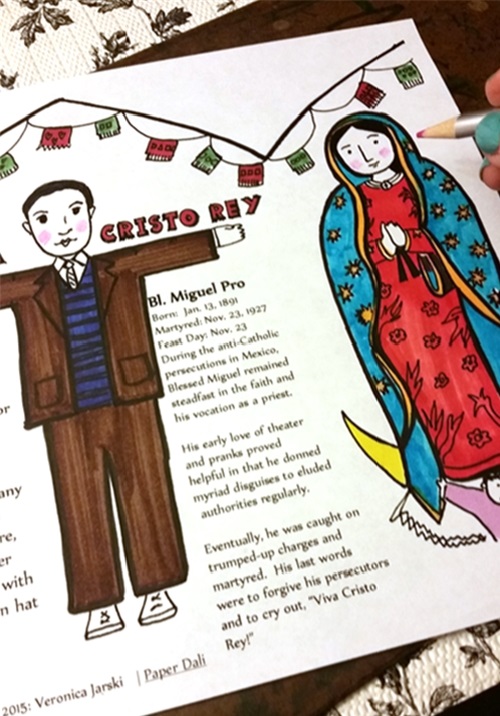 CRISTO REY
Bl. Miguel Pro
Born: Jan. 13, 1891
Martyred: Nov. 23, 1927
Feast Day: Nov. 23
During the anti-Catholic
persecutions in Mexico,
Blessed Miguel remained
steadfast in the faith and
his vocation as a priest.
His early love of theater
and pranks proved
helpful in that he donned
myriad disguises to eluded
authorities regularly.
Eventually, he was caught on
trumped-up charges and
martyred. His last words
were to forgive his persecutors
and to cry out, "Viva Cristo
Rey!"
or
any
with
hat
2015: Veronica Jarski | Paper Dali